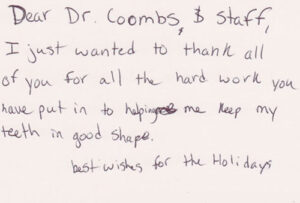 Dear Dr. Coombs, & Staff,
I just wanted to thank all
of you for all the hard work you
have put in to helping me keep my
teeth in good shape.
best wishes for the Holidays